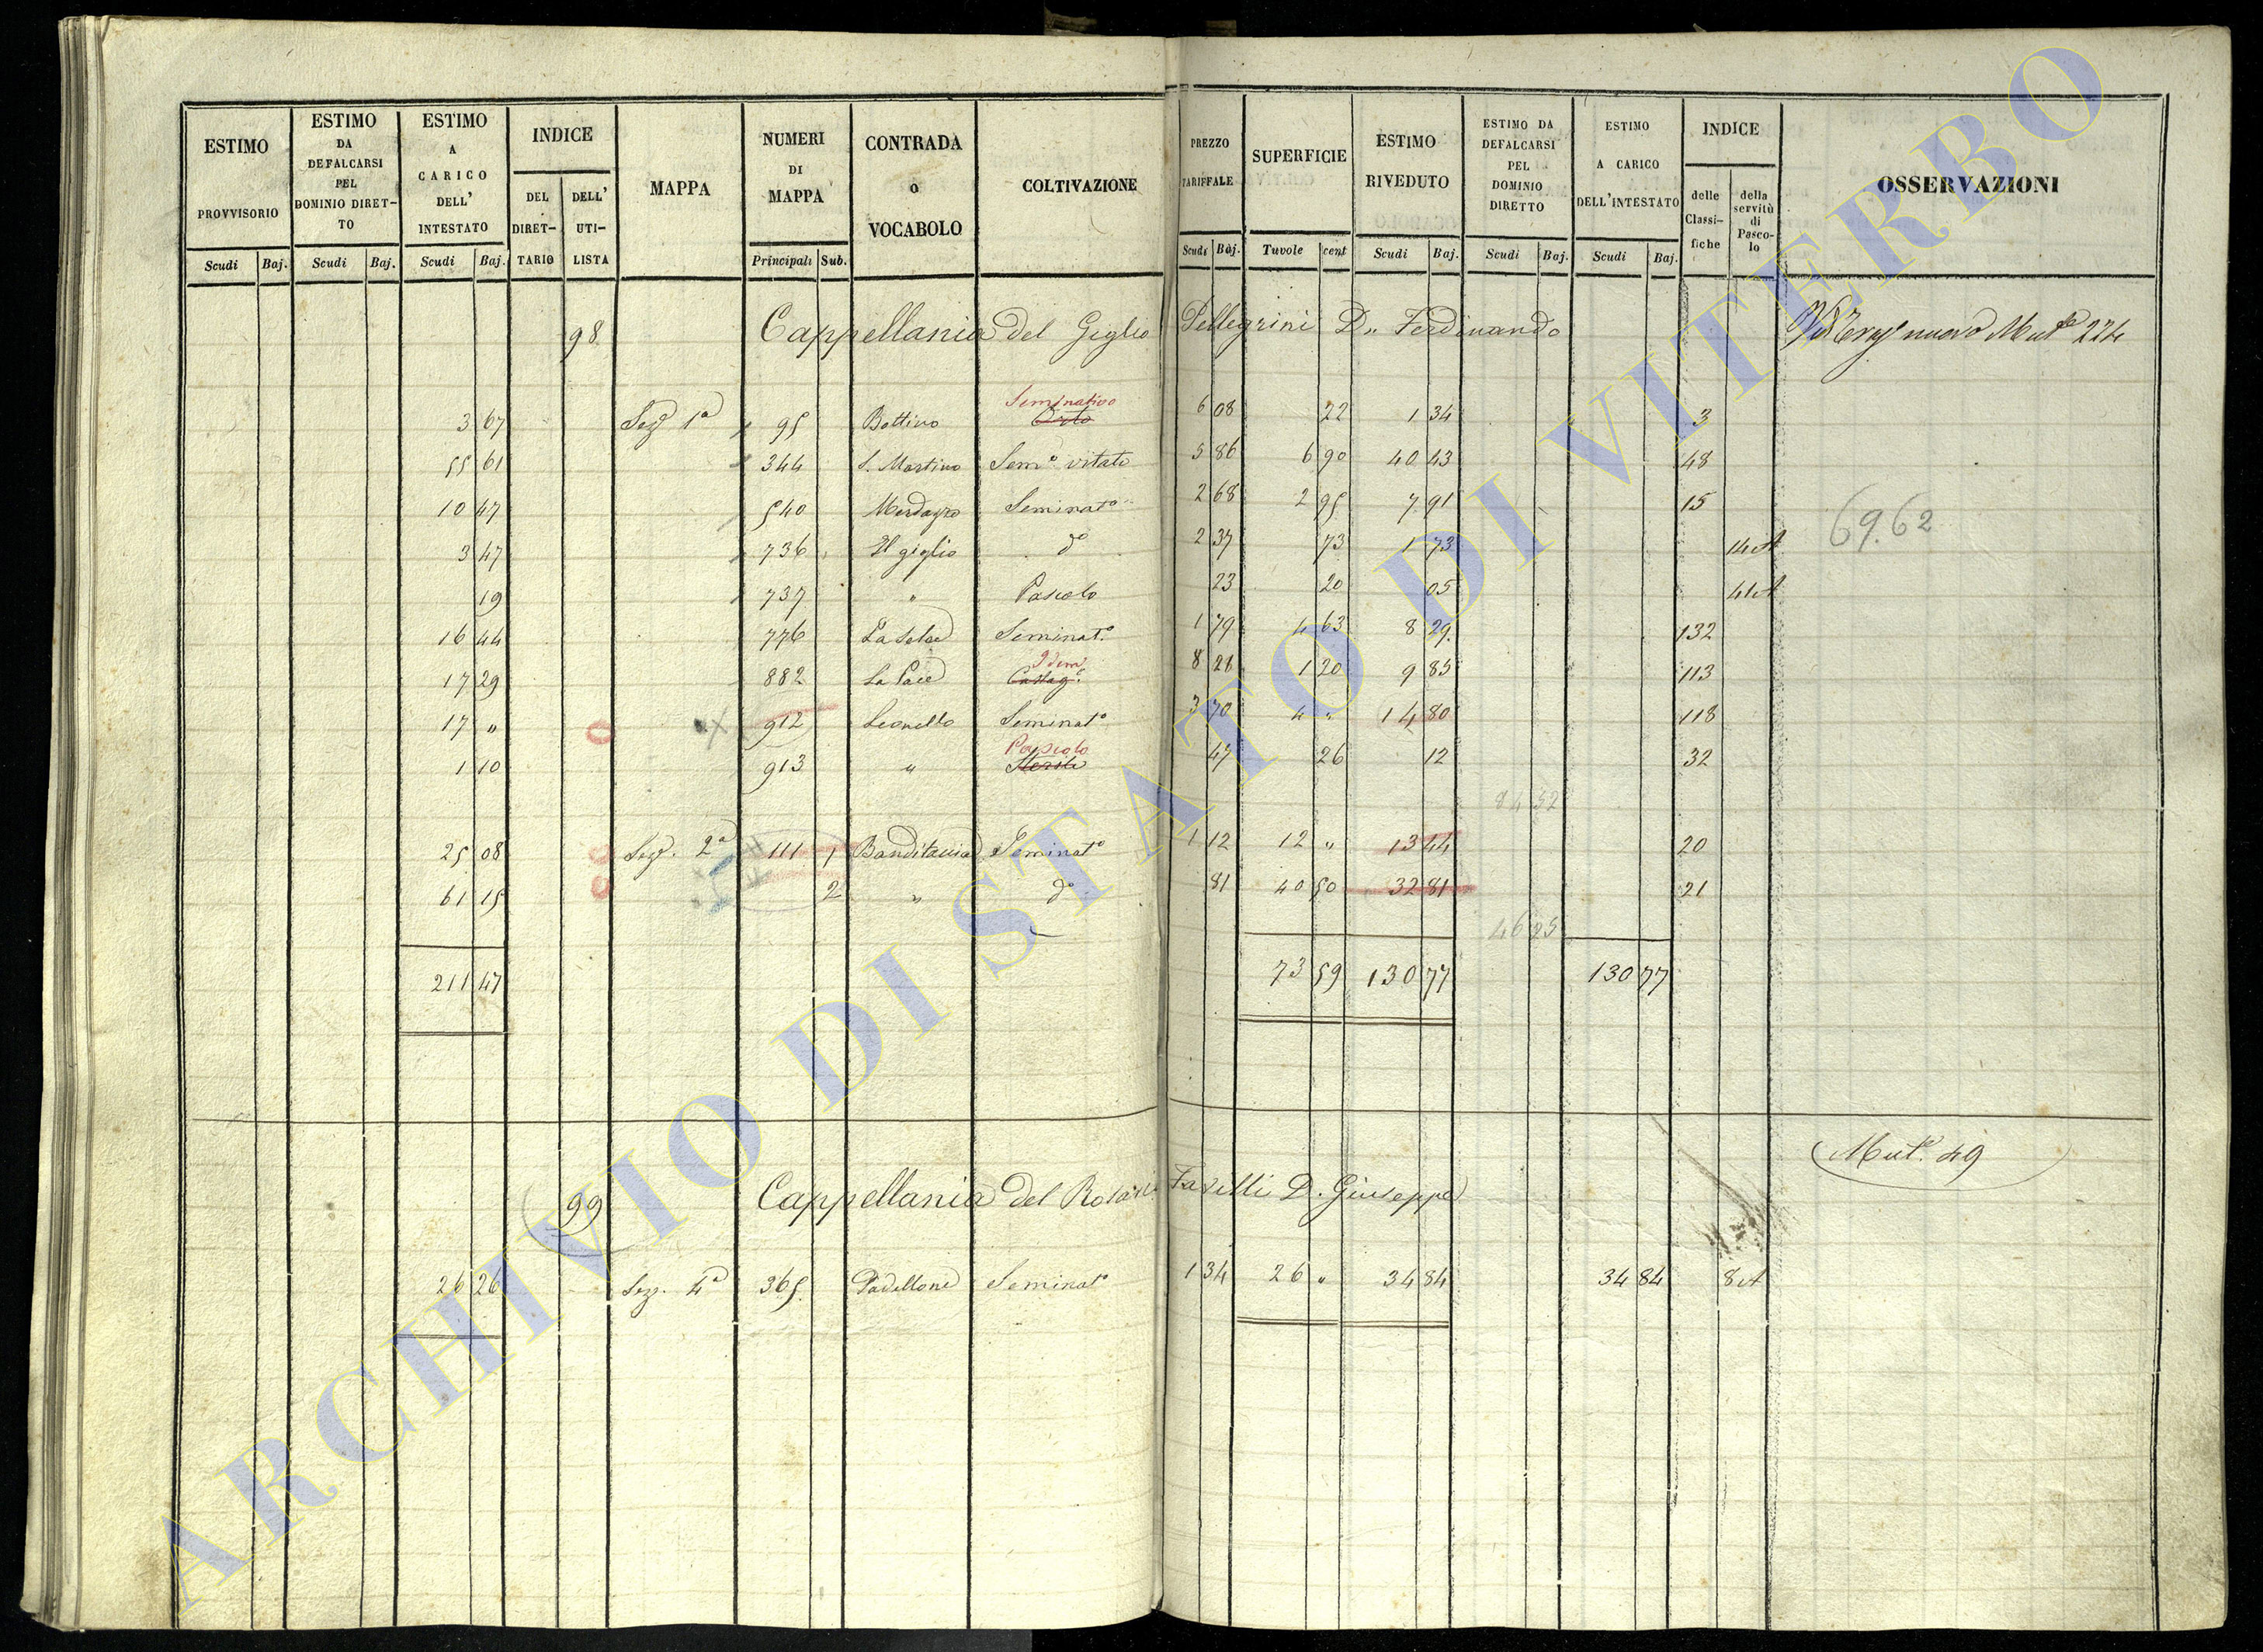 ESTIMO PROVVISORIO | ESTIMO DA DEFALCARSI PEL DOMINIO DIRETTO | ESTIMO A CARICO DELL' INTESTATO | INDICE | MAPPA | NUMERI DI MAPPA | CONTRADA o VOCABOLO | COLTIVAZIONE | PREZZO TARIFFALE | SUPERFICIE | ESTIMO RIVEDUTO | ESTIMO DA DEFALCARSI PEL DOMINIO DIRETTO | ESTIMO A CARICO DELL'INTESTATO | INDICE | OSSERVAZIONI
DEL DIRET-TARIO | DELL' UTI-LISTA | delle Classi-fiche | della servitù di Pasco-lo
Scudi | Baj. | Scudi | Baj. | Scudi | Baj. | Principali | Sub. | Scudi | Baj. | Tavole | cent | Scudi | Baj. | Scudi | Baj. | Scudi | Baj.
98 Cappellania del Giglio Pellegrini D. Ferdinando nuovo Mut 224
3 67 Sez 1ª 95 Bottino Orto Seminativo 6 08 22 1 34 3
55 61 344 S. Martino Semº vitato 5 86 6 90 40 43 48
10 47 540 Seminatº 2 68 2 95 7 91 15
69.62
3 47 736 Il giglio dº 2 37 73 1 73 14 A
19 737 " Pascolo 23 20 05 41 A
16 44 776 La Selce Seminatº 1 79 4 63 8 29 132
17 29 882 La Pace Castagº Idem 8 21 1 20 9 85 113
17 " 912 Leonello Seminatº 3 70 4 " 14 80 118
1 10 913 " Sterile Pascolo 47 26 12 32
84 52
25 08 Sez. 2ª 111 1 Banditaccia Seminatº 1 12 12 " 13 44 20
61 15 2 " dº 81 40 50 32 81 21
46 25
211 47 73 59 130 77 130 77
Mutº 49
99 Cappellania del Rosario D. Giuseppe
26 26 Sez. 4ª 365 Padellone Seminatº 1 34 26 " 34 84 34 84 8 A
ARCHIVIO DI STATO DI VITERBO